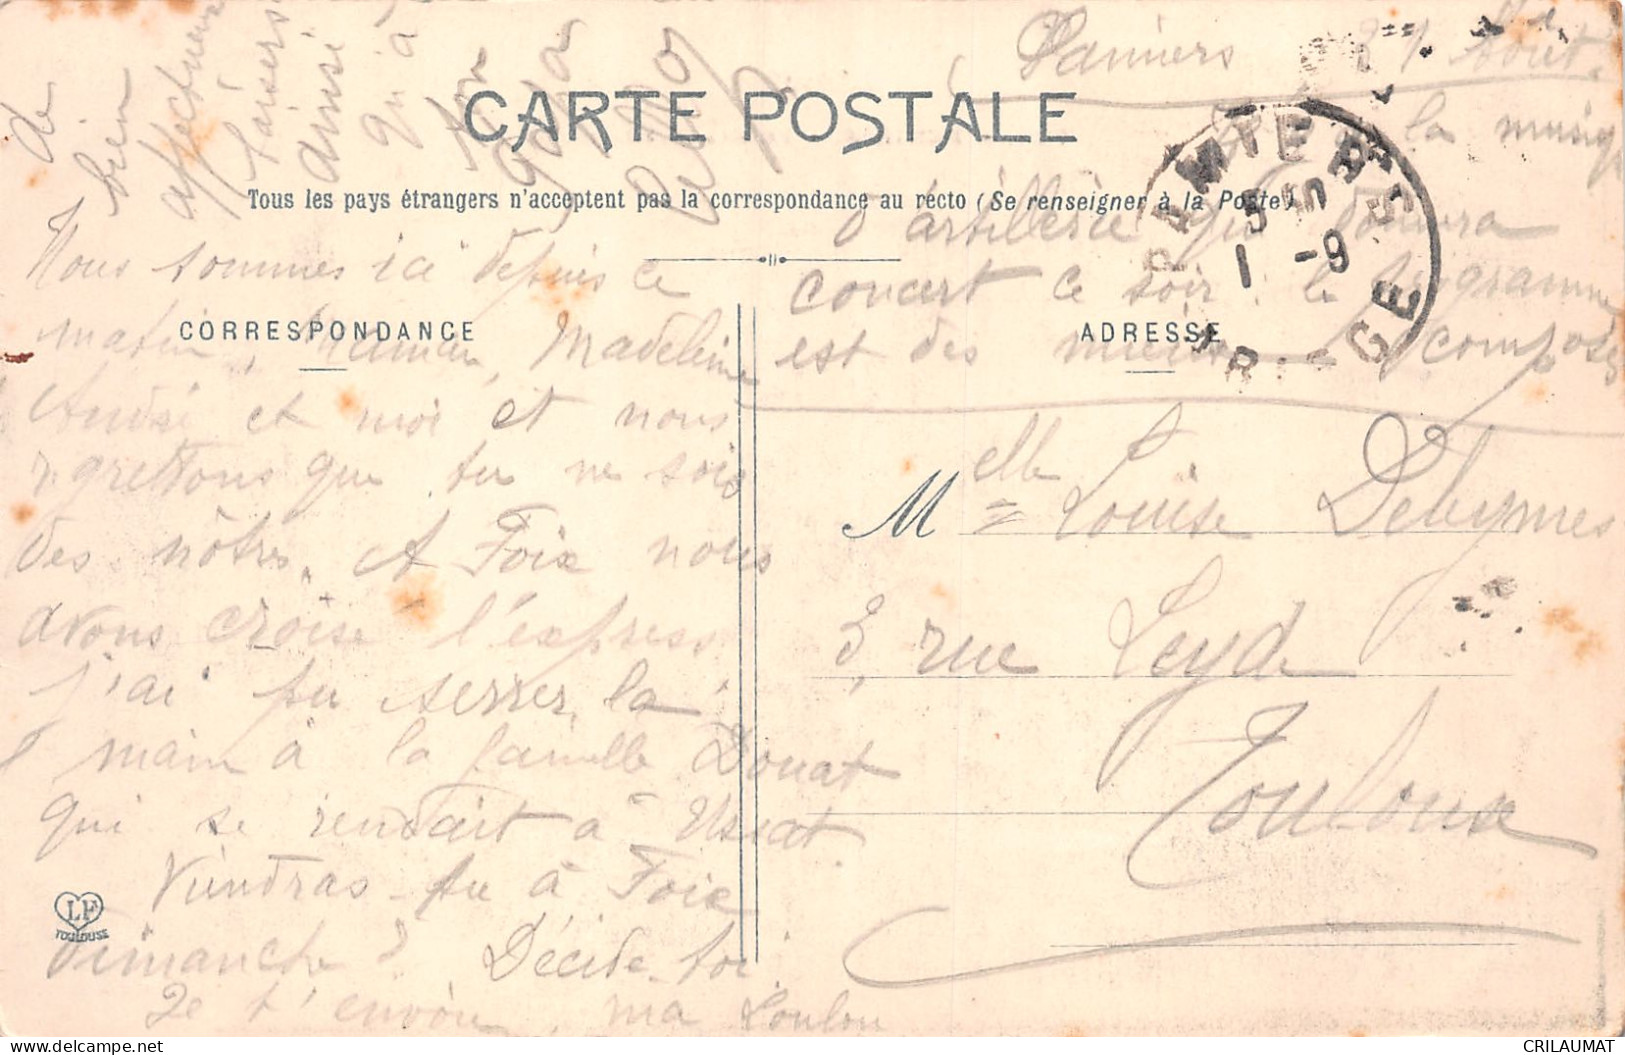 Pamiers 31 Août
la musique
d'artillerie qui donnera
concert ce soir le programme
est des mieux composés
CARTE POSTALE
Tous les pays étrangers n'acceptent pas la correspondance au recto (Se renseigner à la Poste)
PAMIERS
1 -9
ARIÈGE
CORRESPONDANCE
Nous sommes ici depuis ce
matin, Maman, Madeleine
André et moi et nous
regrettons que tu ne sois
des nôtres. A Foix nous
avons croisé l'express
j'ai pu serrer la
main à la famille Douat
qui se rendait à Ussat.
Viendras-tu à Foix
Dimanche ? Décide-toi.
Je t'envoie, ma Loulou
de
bien
affectueux
baisers
ainsi
qu'à
ADRESSE
Melle Louise Deluymes
3, rue Leyde
Toulouse
LF
TOULOUSE
CRILAUMAT